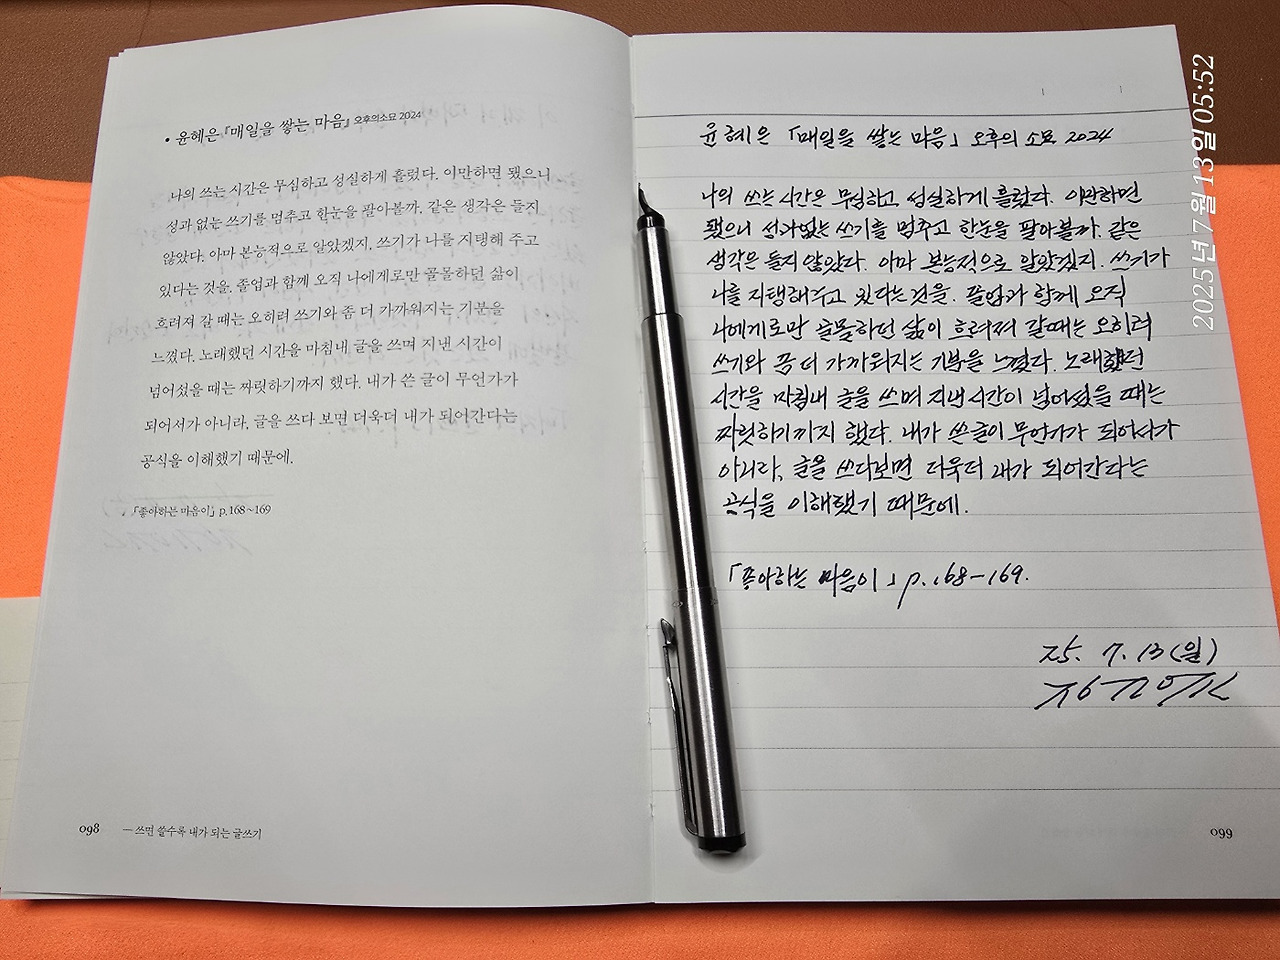 • 윤혜은 『매일을 쌓는 마음』 오후의소묘 2024
나의 쓰는 시간은 무심하고 성실하게 흘렀다. 이만하면 됐으니
성과 없는 쓰기를 멈추고 한눈을 팔아볼까. 같은 생각은 들지
않았다. 아마 본능적으로 알았겠지. 쓰기가 나를 지탱해 주고
있다는 것을. 졸업과 함께 오직 나에게로만 골몰하던 삶이
흐려져 갈 때는 오히려 쓰기와 좀 더 가까워지는 기분을
느꼈다. 노래했던 시간을 마침내 글을 쓰며 지낸 시간이
넘어섰을 때는 짜릿하기까지 했다. 내가 쓴 글이 무언가가
되어서가 아니라, 글을 쓰다 보면 더욱더 내가 되어간다는
공식을 이해했기 때문에.
「좋아하는 마음이」 p.168~169
098 — 쓰면 쓸수록 내가 되는 글쓰기
윤혜은 「매일을 쌓는 마음」 오후의 소묘 2024
나의 쓰는 시간은 무심하고 성실하게 흘렀다. 이만하면
됐으니 성과없는 쓰기를 멈추고 한눈을 팔아볼까. 같은
생각은 들지 않았다. 아마 본능적으로 알았겠지. 쓰기가
나를 지탱해주고 있다는 것을. 졸업과 함께 오직
나에게로만 골몰하던 삶이 흐려져 갈때는 오히려
쓰기와 좀 더 가까워지는 기분을 느꼈다. 노래했던
시간을 마침내 글을 쓰며 지낸 시간이 넘어섰을 때는
짜릿하기까지 했다. 내가 쓴 글이 무언가가 되어서가
아니라, 글을 쓰다보면 더욱더 내가 되어간다는
공식을 이해했기 때문에.
「좋아하는 마음이」 p.168-169.
25. 7. 13 (일)
099
2025년 7월 13일 05:52